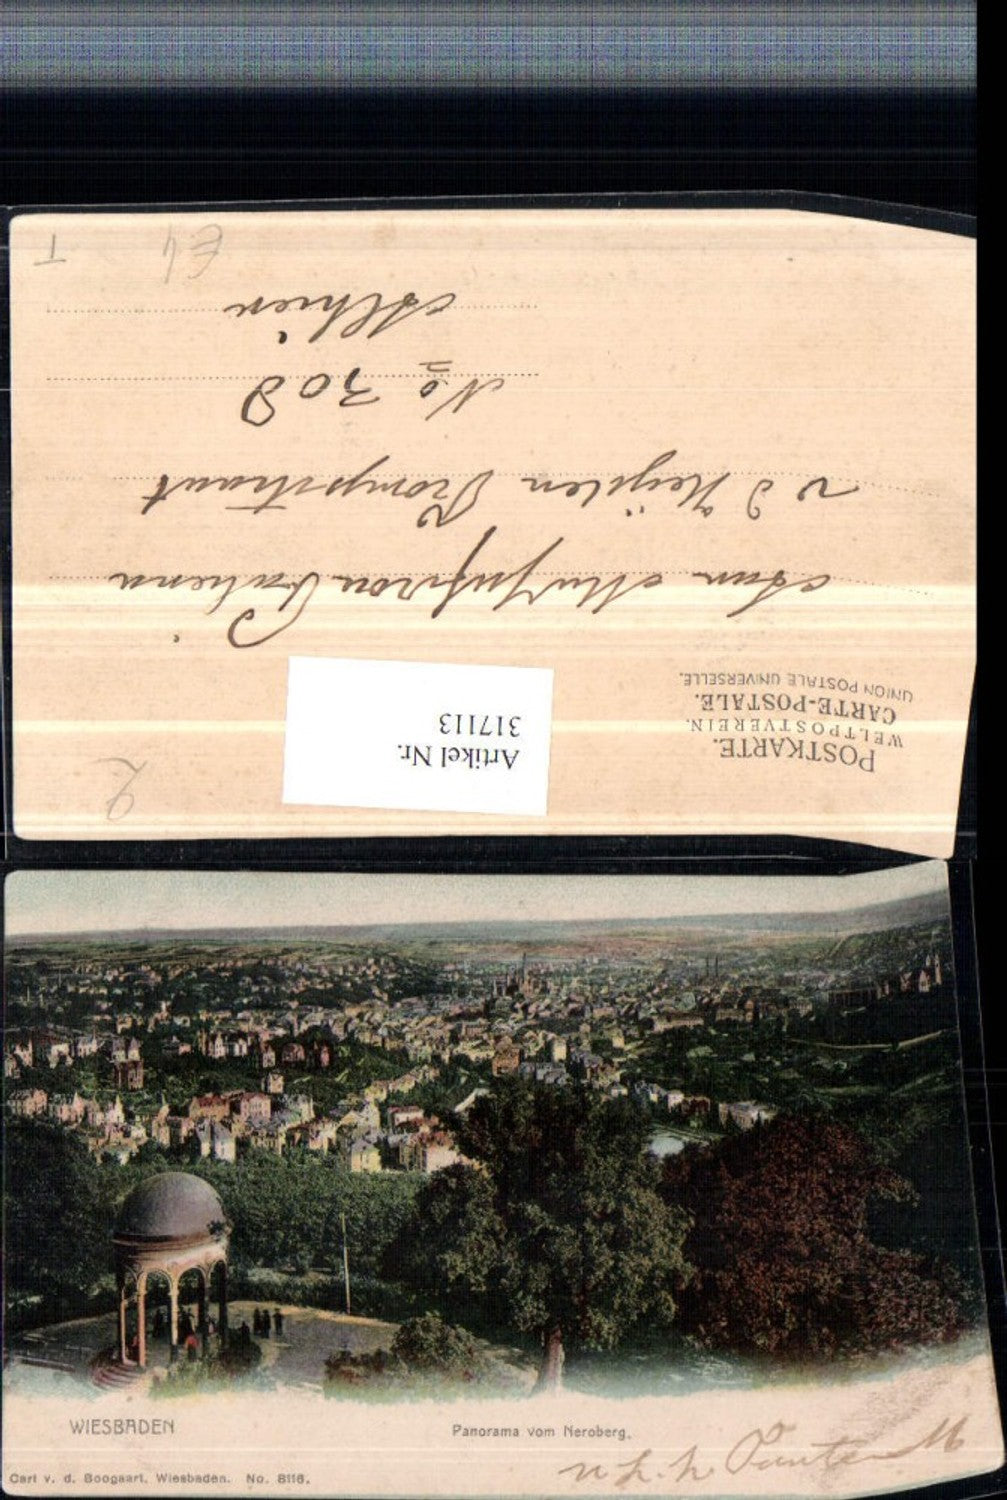 POSTKARTE.
WELTPOSTVEREIN.
CARTE-POSTALE.
UNION POSTALE UNIVERSELLE.
Artikel Nr.
317113
2
Aan Mejufvrou
v d Heijden
No 308
€4
T
WIESBADEN
Panorama vom Neroberg.
Carl v. d. Boogaart, Wiesbaden. No. 8118.